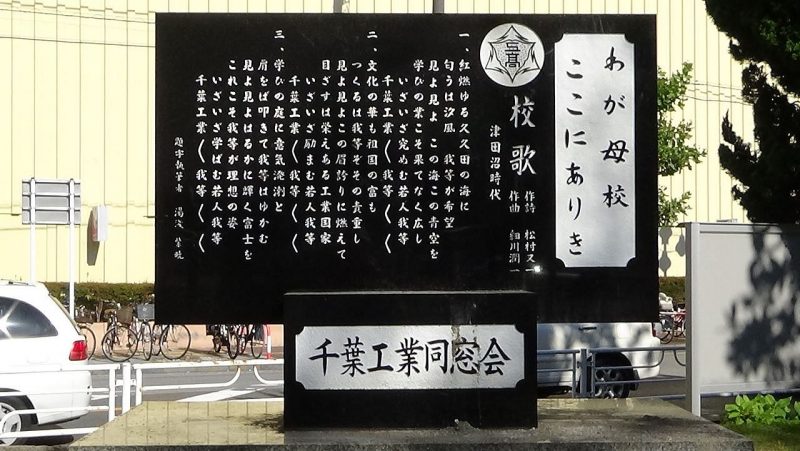 わが母校
ここにありき
工高
校歌
津田沼時代
作詩 松村又一
作曲 細川潤一
一、紅燃ゆる久久田の海に
匂うは汐風 我等が希望
見よ見よ この海この青空を
学びの業こそ果てなく広し
いざいざ究めむ若人我等
千葉工業〱我等〱〱
二、文化の華も祖国の富も
つくるは我等ぞその貴重し
見よ見よこの眉誇りに燃えて
目ざすは栄えある工業国家
いざいざ励まむ若人我等
千葉工業〱我等〱〱
三、学びの庭に意気溌溂と
肩をば叩きて我等はゆかむ
見よ見よはるかに輝く富士を
これこそ我等が理想の姿
いざいざ学ばむ若人我等
千葉工業〱我等〱〱
題字執筆者 湯浅
千葉工業同窓会